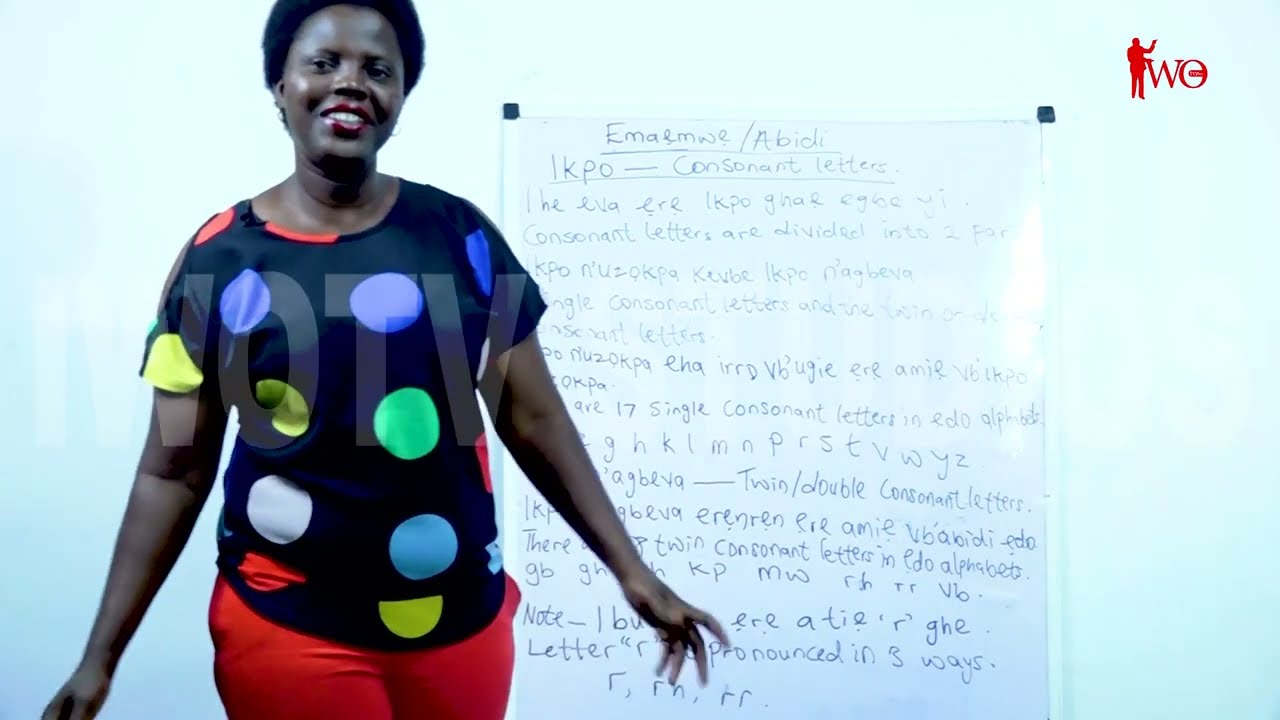 WO
IWOTV
Emaẹmwẹ/Abidi
Ikpo — Consonant letters.
Ihe eva ẹre Ikpo ghae egbe yi.
Consonant letters are divided into 2 par
kpo n'uzọkpa kevbe Ikpo n'agbeva
ngle consonant letters and the twin or d
nsonant letters.
po n'uzọkpa eha irrọ vb'ugie ẹrẹ amiẹ vb'ikpo
ọkpa.
are 17 Single consonant letters in edo alphabets.
g h k l m n p r s t v w y z
'agbeva — Twin/double consonant letters.
Ikp gbeva erẹnrẹn ẹrẹ amiẹ vb'abidi ẹdo
There twin consonant letters in ẹdo alphabets.
gb gh h kp mw rh rr vb.
Note — Ibu ẹrẹ a tiẹ 'r' ghe.
Letter "r" pronounced in 3 ways.
r, rh, rr.